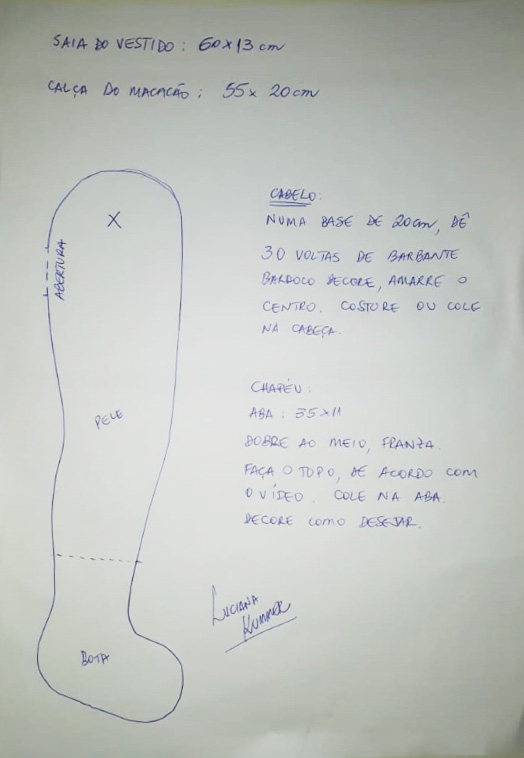 SAIA DO VESTIDO: 60x13cm
CALÇA DO MACACÃO: 55x 20cm
X
ABERTURA
PELE
BOTA
CABELO:
NUMA BASE DE 20cm, DÊ
30 VOLTAS DE BARBANTE
BARROCO DECORE, AMARRE O
CENTRO. COSTURE OU COLE
NA CABEÇA.
CHAPÉU:
ABA: 35x11
DOBRE AO MEIO, FRANZA.
FAÇA O TOPO, DE ACORDO COM
O VÍDEO. COLE NA ABA.
DECORE COMO DESEJAR.
LUCIANA
KUMMER